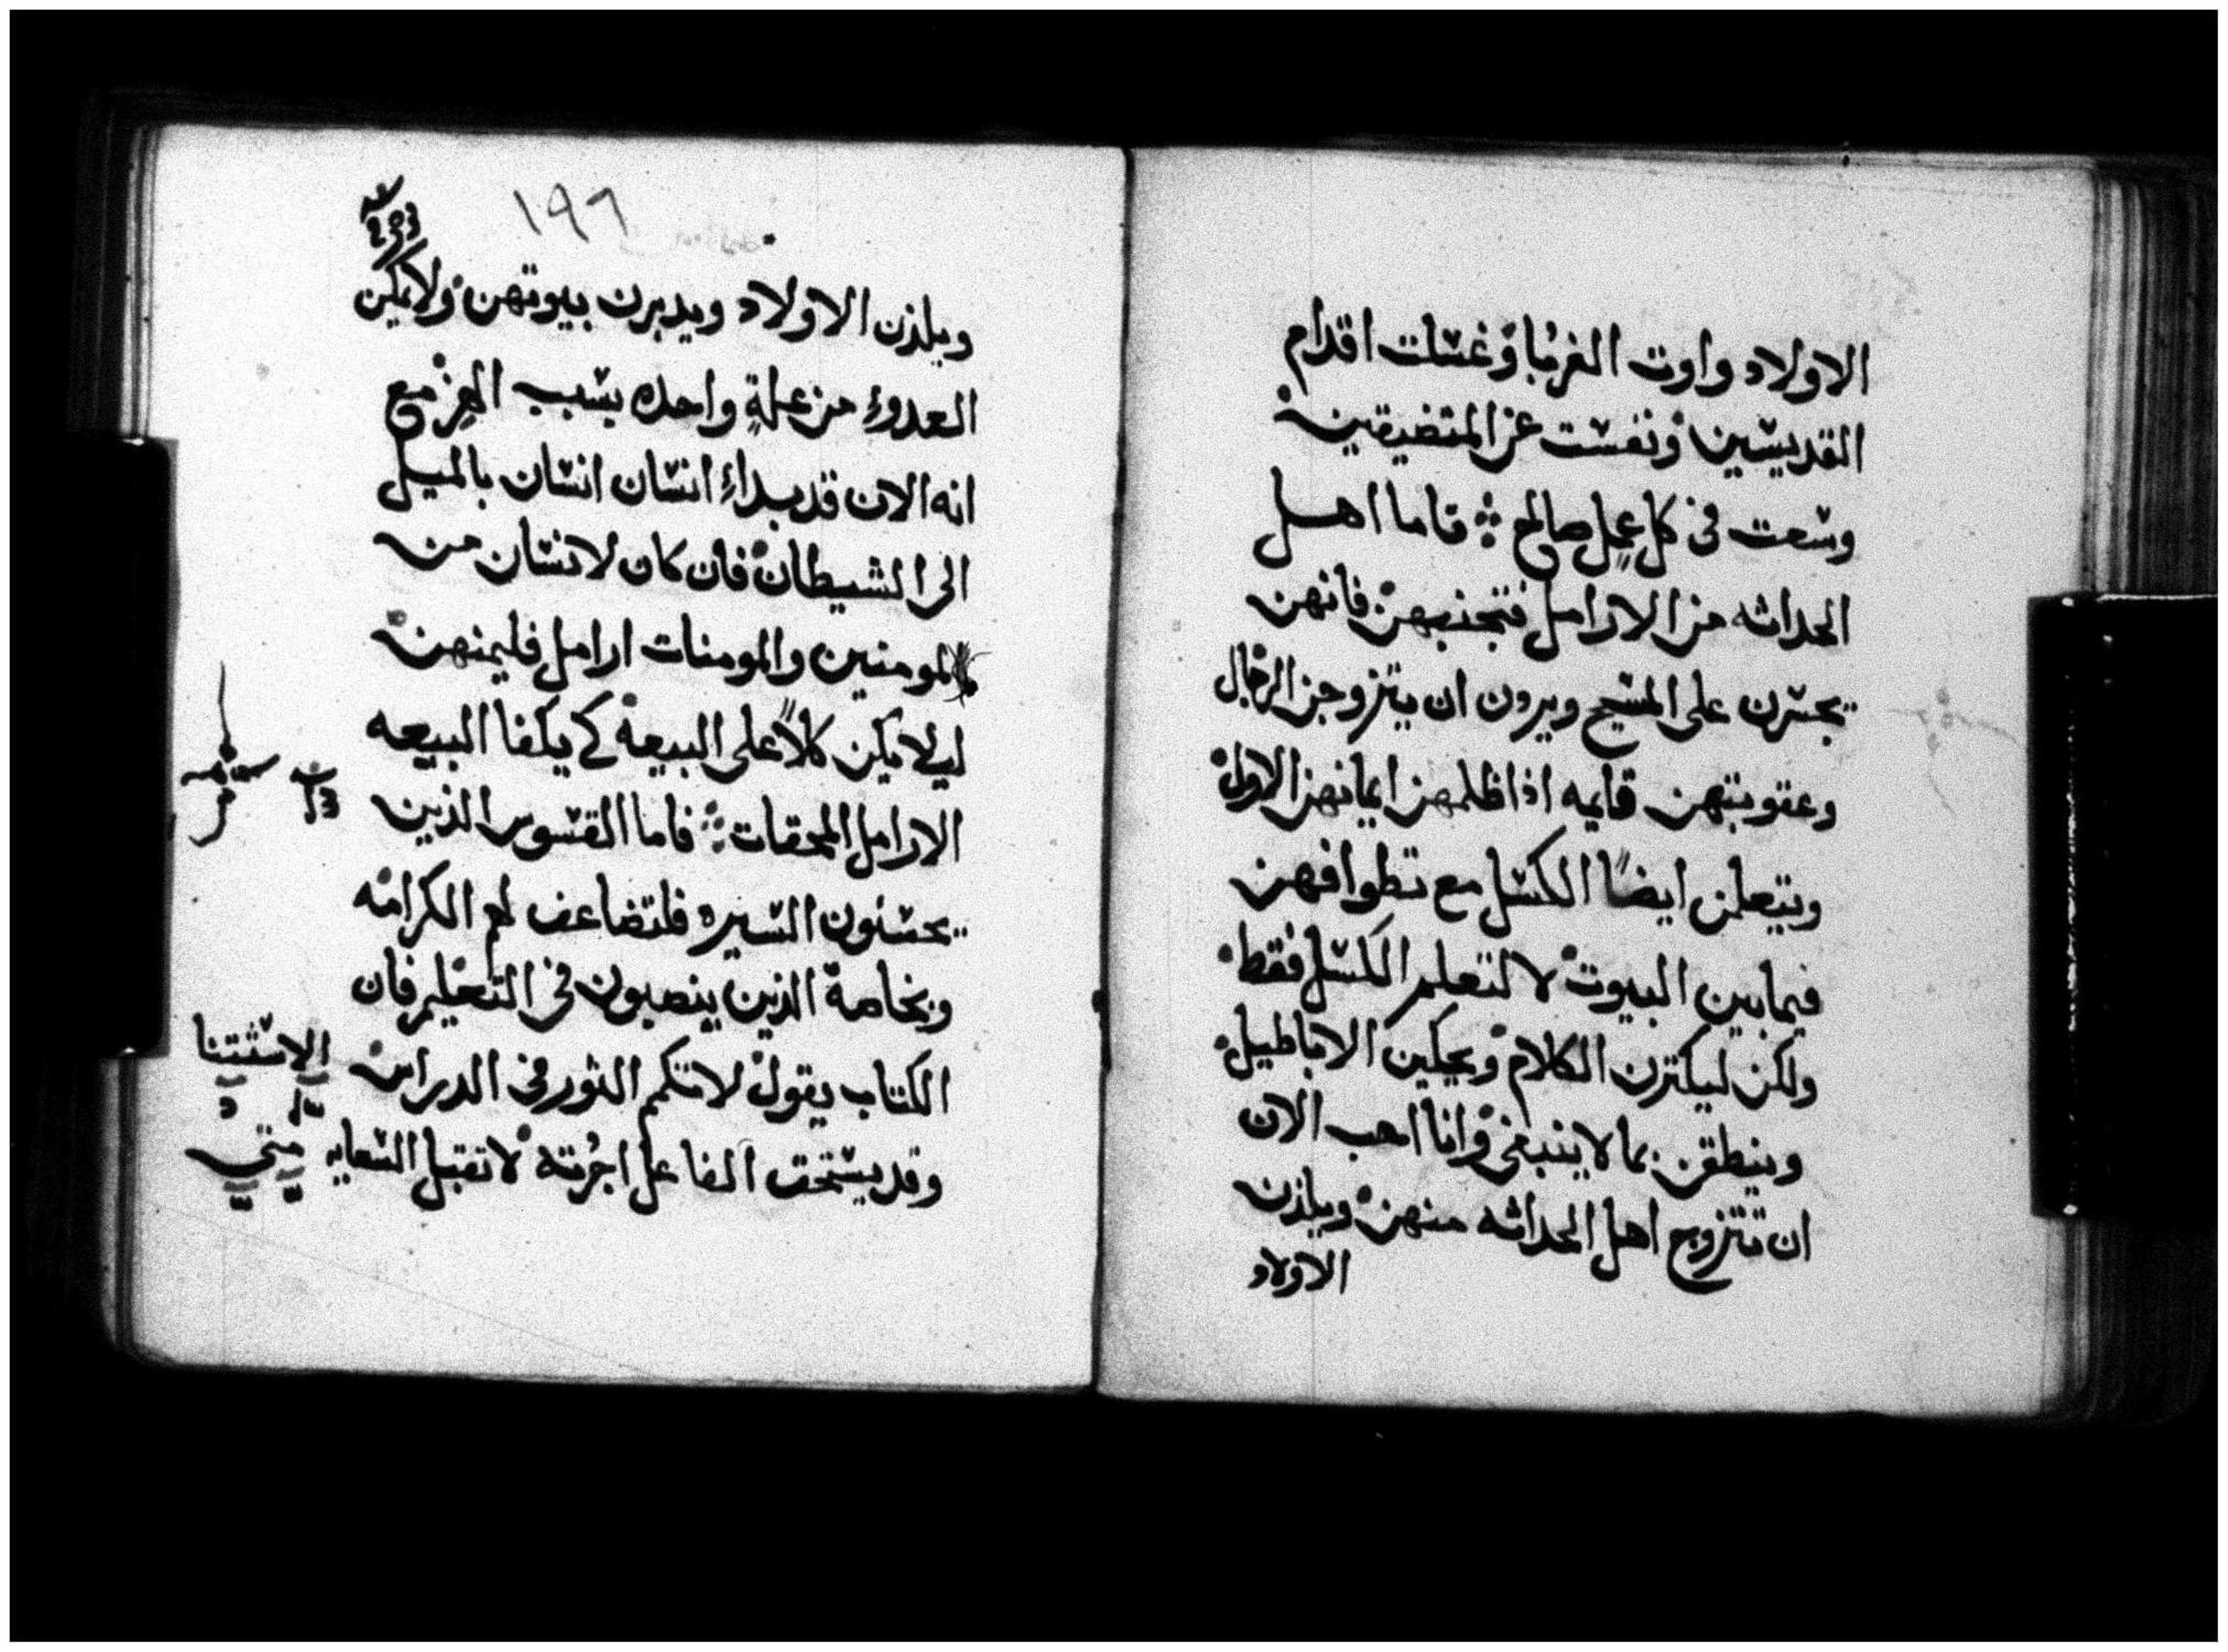 الاولاد واوت الغربا وغسلت اقدام
القديسين ونفست عن المتضيقين
وسعت في كل عمل صالح ۞ فاما اهل
الحداثه من الارامل فتجنبهن فانهن
يجسرن على المسيح ويردن ان يتزوجن الرجال
وعقوبتهن قايمه اذا ظلمهن ايمانهن الاول
ويتعلمن ايضًا الكسل مع تطوافهن
فيما بين البيوت لا لتعلم الكسل فقط
ولكن ليكثرن الكلام ويحكين الاباطيل
وينطقن بما لا ينبغي وانا احب الان
ان تتزوج اهل الحداثه منهن ويلدن
الاولاد
١٩٦
ويلدن الاولاد ويدبرن بيوتهن ولا يمكن
العدو من علةٍ واحده بسبب الهزء مع
انه الان قد بداء انسان انسان بالميل
الى الشيطان فان كان لانسان من
المومنين والمومنات ارامل فليمنهن
ليلا يكن كلاً على البيعه كي يكفا البيعه
الارامل المحقات ۞ فاما القسوس الذين
يحسنون السيره فلتضاعف لهم الكرامه
وبخاصة الذين ينصبون في التعليم فان
الكتاب يقول لا تكم الثور في الدراس
الاستثنا
وقد يستحق الفاعل اجرته لا تقبل السعايه
متي